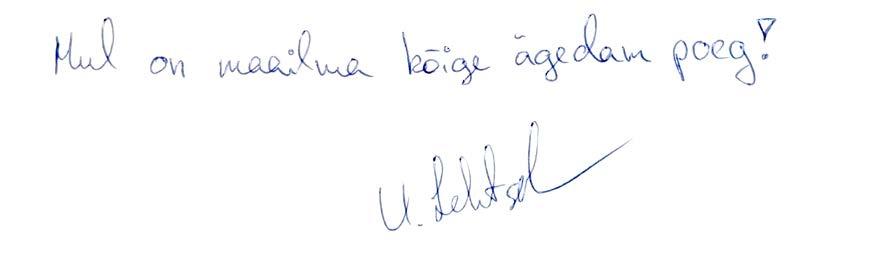 Mul on maailma kõige ägedam poeg!
U. Lehtsal